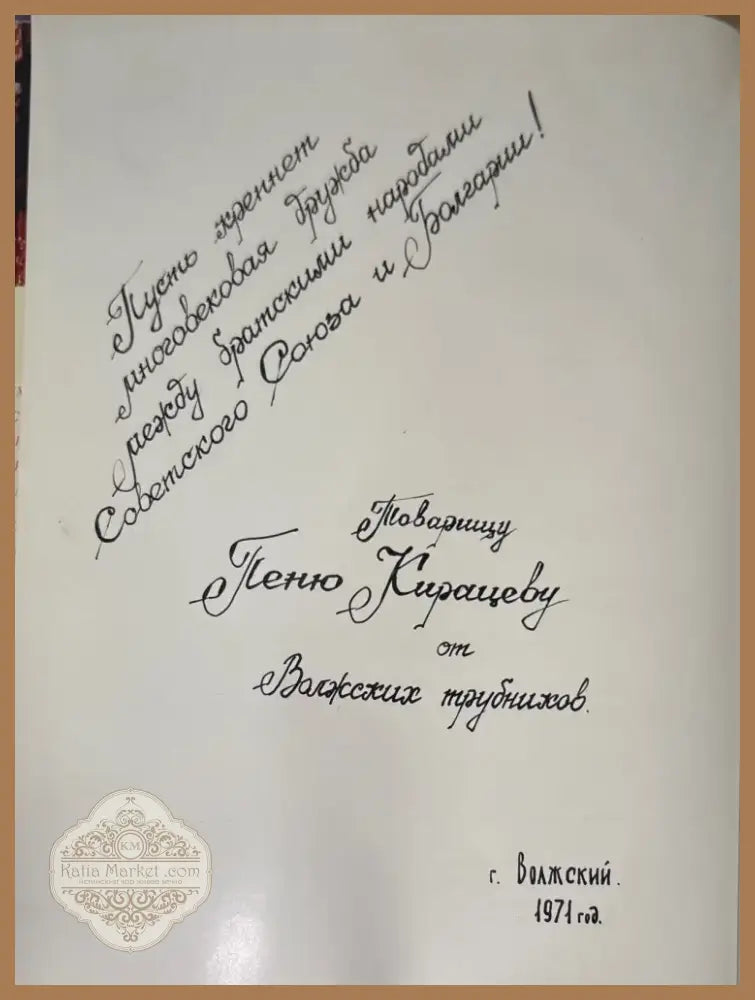 Пусть крепнет
многовековая дружба
между братскими народами
Советского Союза и Болгарии!
Товарищу
Пеню Кирацеву
от
Волжских трубников.
г. Волжский.
1971 год.
KM
Katia Market .com